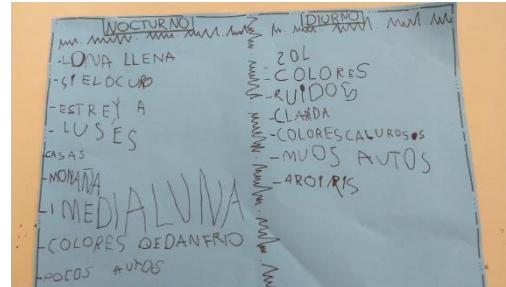 NOCTURNO
-LUNA LLENA
-SIELOCURO
-ESTREYA
-LUSES
CASAS
-MONAÑA
-1 MEDIALUNA
-COLORES QEDANFRIO
-POCOS AUTOS
DIURNO
-SOL
-COLORES
-RUIDOS
-COLORESCALUROSOS
-MUOS AUTOS
-AROIRIS